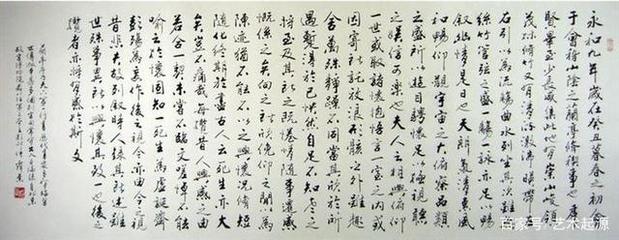 永和九年歲在癸丑暮春之初會
于會稽山陰之蘭亭脩禊事也羣
賢畢至少長咸集此地有崇山峻領
茂林脩竹又有清流激湍暎帶左
右引以為流觴曲水列坐其次雖無
絲竹管弦之盛一觴一詠亦足以暢
敘幽情是日也天朗氣清惠風
和暢仰觀宇宙之大俯察品類
之盛所以遊目騁懷足以極視聽
之娛信可樂也夫人之相與俯仰
一世或取諸懷抱悟言一室之內或
因寄所託放浪形骸之外雖趣
舍萬殊靜躁不同當其欣於所
遇蹔得於己怏然自足不知老之
將至及其所之既惓情隨事遷感
慨係之矣向之所欣俛仰之間以為
陳迹猶不能不以之興懷況脩短
隨化終期於盡古人云死生亦大
矣豈不痛哉每攬昔人興感之由
若合一契未嘗不臨文嗟悼不能
喻之於懷固知一死生為虛誕齊
彭殤為妄作後之視今亦由今之視
昔悲夫故列敘時人錄其所述雖
世殊事異所以興懷其致一也後之
攬者亦將有感於斯文
百家号/艺术起源